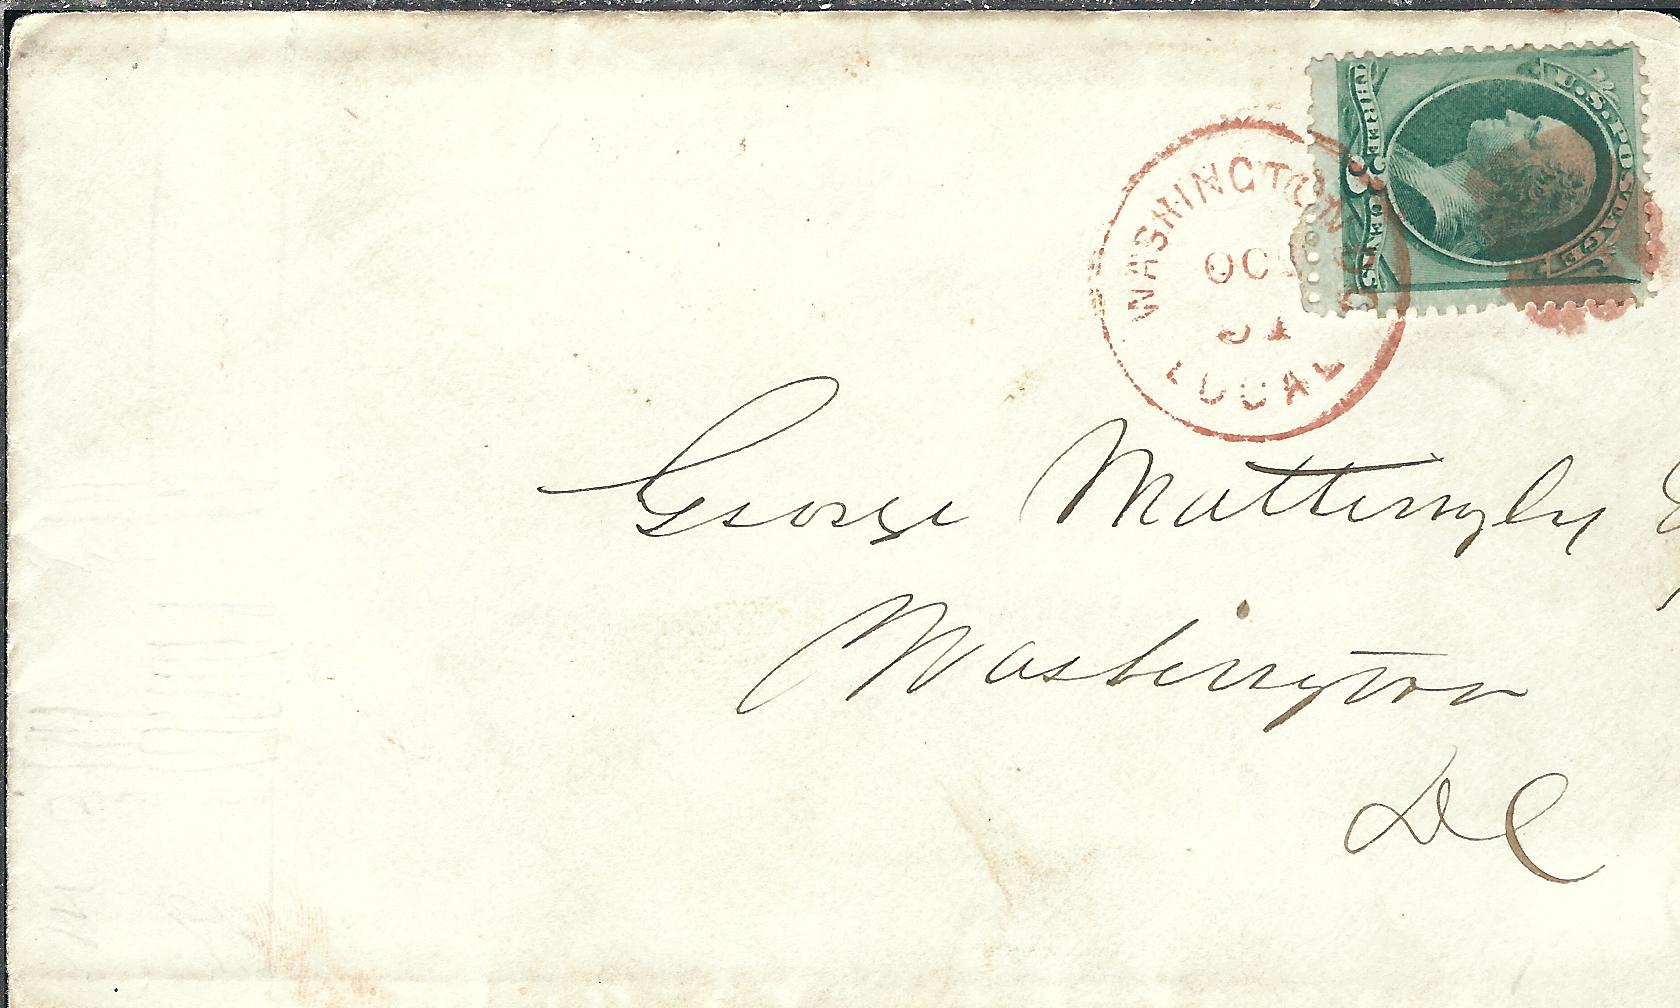 U.S. POSTAGE
THREE 3 CENTS
WASHINGTON
OCT
31
LOCAL
George Mattingly
Washington
DC